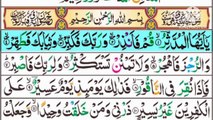 بِسْمِ اللّٰهِ الرَّحْمٰنِ الرَّحِيْمِ
يٰۤاَيُّهَا الْمُدَّثِّرُ قُمْ فَاَنْذِرْ وَرَبَّكَ فَكَبِّرْ وَثِيَابَكَ فَطَهِّرْ
وَالرُّجْزَ فَاهْجُرْ وَلَا تَمْنُنْ تَسْتَكْثِرُ وَلِرَبِّكَ فَاصْبِرْ
فَاِذَا نُقِرَ فِى النَّاقُوْرِ فَذٰلِكَ يَوْمَئِذٍ يَّوْمٌ عَسِيْرٌ عَلَى
الْكٰفِرِيْنَ غَيْرُ يَسِيْرٍ ذَرْنِىْ وَمَنْ خَلَقْتُ وَحِيْدًا وَّجَعَلْتُ